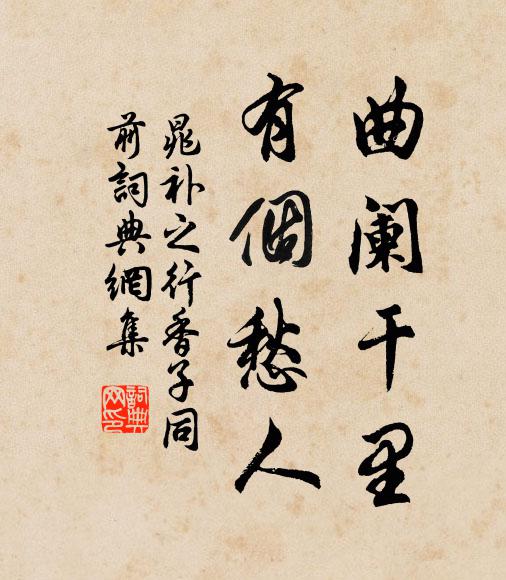 曲阑干里
有個愁人
晁补之行香子同
前詞典網集
詞典
网印